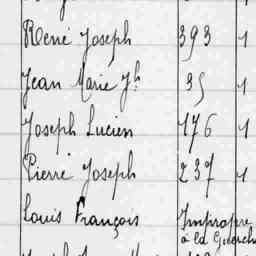 René Joseph 393 1
Jean Marie Jh 35 1
Joseph Lucien 176 1
Pierre Joseph 237 1
Louis François Impropre
à la Guerche